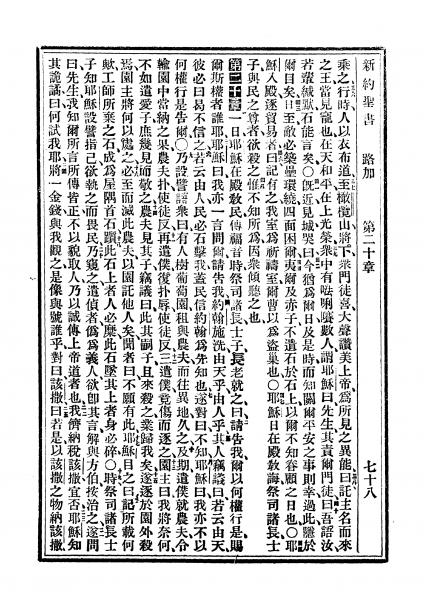 新約聖書 路加 第二十章 七十八
乘之行時人以衣布道至橄欖山將下衆門徒喜大聲讚美上帝爲所見之異能曰託主名而來
之王當見寵也在天和平在上光榮衆中有𠵽唎㘔數人謂耶穌曰先生其責爾門徒曰吾語汝
若輩緘默石能言矣○旣近見城哭曰今猶爲爾日及是時而知關爾平安之事則幸過此隱於
爾目矣日至敵必築壘環繞四面困爾夷爾及赤子不遺石於石上以爾不知眷顧之日也○耶
穌入殿逐貿易者曰記有之我室爲祈禱室爾曹以爲盜巢也○耶穌日在殿敎誨祭司諸長士
子與民之尊者欲殺之惟不知所爲因衆傾聽之也
第二十章一日耶穌在殿敎民傳福音時祭司諸長士子長老就之曰請告我爾以何權行是賜
爾斯權者誰耶耶穌曰我亦一言問爾請告我約翰施洗由天乎由人乎其人竊議曰若云由天
彼必曰曷不信之若云由人民必石擊我蓋民信約翰爲先知也遂對曰不知耶穌曰我亦不以
何權行是告爾○乃設譬語衆曰有人樹葡萄園租與農夫而往異地久之及期遣僕就農夫令
輸園中當納之果農夫扑之使徒反再遣僕復扑辱使徒反三遣僕竟傷而逐之園主曰我將奈何
不如遣愛子庶幾見而敬之農夫見其子竊議曰此其嗣子且來殺之業歸我矣遂逐於園外殺
焉園主將何以處之必至而滅此農夫以園託他人矣聞者曰不願有此耶穌目之曰記所載何
歟工師所棄之石成爲屋隅首石躓此石上者人必糜此石墜其上者身必碎○時祭司諸長士
子知耶穌設譬指己欲執之而畏民乃窺之遣偵者僞爲義人欲卽其言解與方伯按治之遂問
曰先生我知爾所言所傳皆正不以貌取人乃以誠傳上帝道者也我儕納稅該撒宜否耶穌知
其詭譎曰何試我耶將一金錢與我觀之是像與號誰乎對曰該撒曰若是以該撒之物納該撒